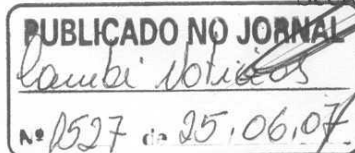 PUBLICADO NO JORNAL
Cambé Notícias
Nº 1527 de 25.06.07